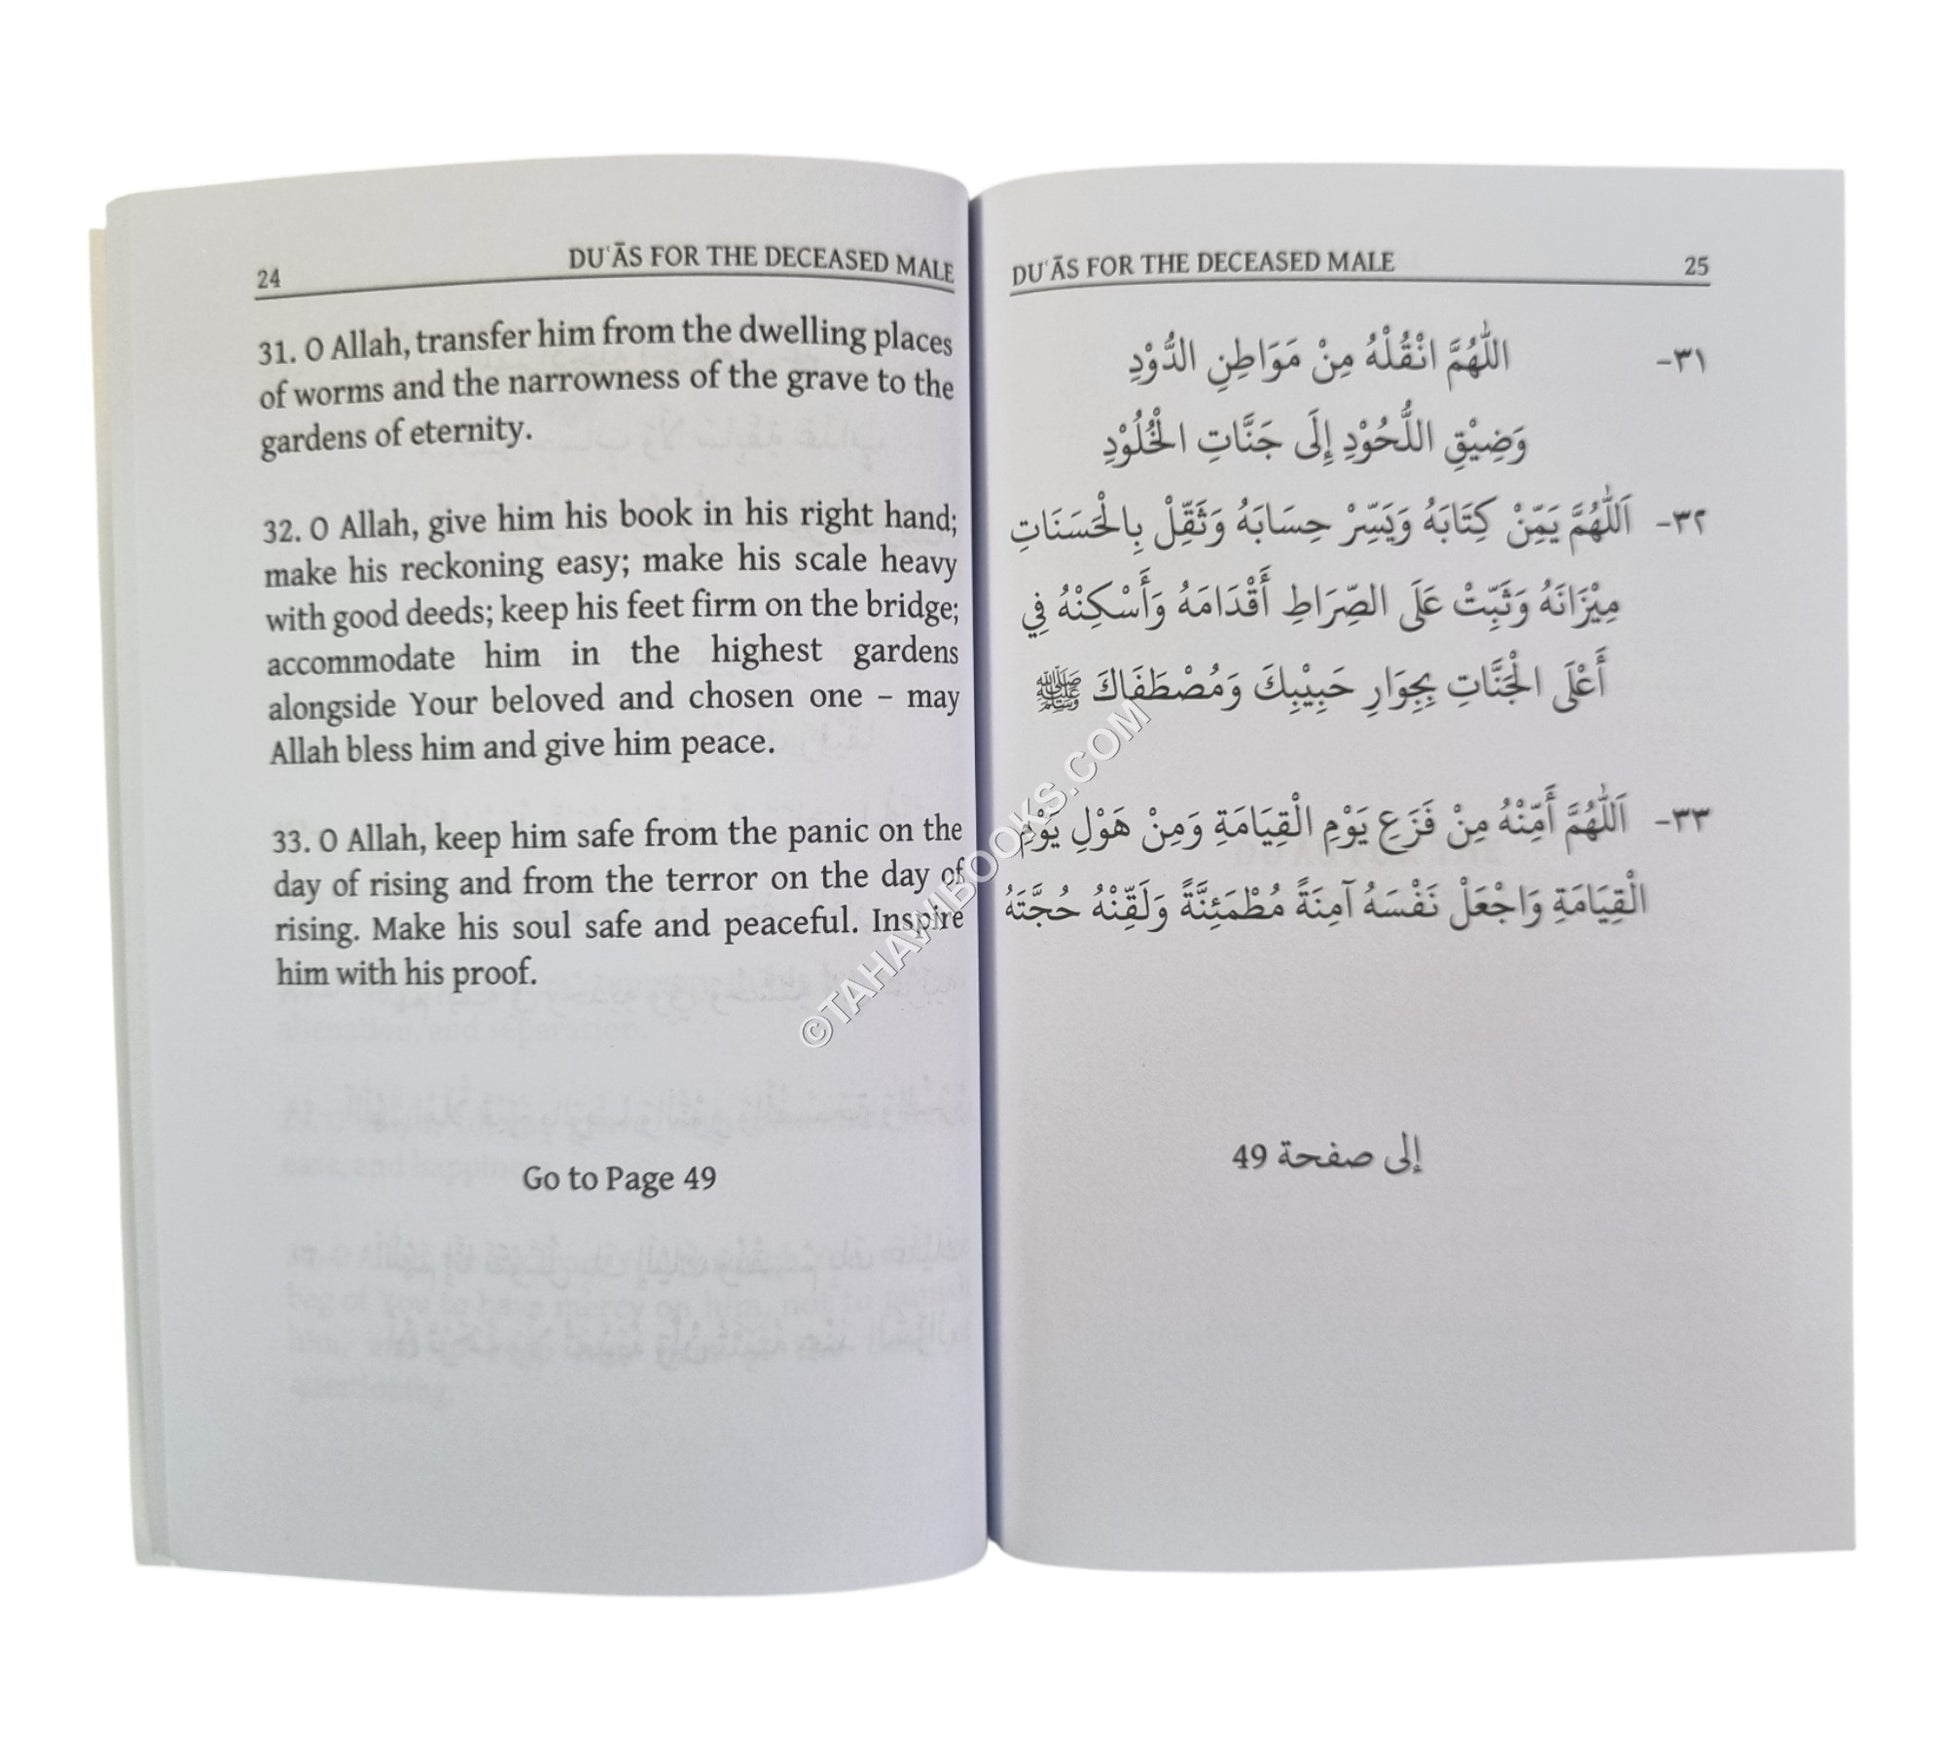 24
DUʿĀS FOR THE DECEASED MALE
31. O Allah, transfer him from the dwelling places
of worms and the narrowness of the grave to the
gardens of eternity.
32. O Allah, give him his book in his right hand;
make his reckoning easy; make his scale heavy
with good deeds; keep his feet firm on the bridge;
accommodate him in the highest gardens
alongside Your beloved and chosen one – may
Allah bless him and give him peace.
33. O Allah, keep him safe from the panic on the
day of rising and from the terror on the day of
rising. Make his soul safe and peaceful. Inspire
him with his proof.
Go to Page 49
DUʿĀS FOR THE DECEASED MALE
25
٣١- اللّٰهُمَّ انْقُلْهُ مِنْ مَوَاطِنِ الدُّوْدِ
وَضِيْقِ اللُّحُوْدِ إِلَى جَنَّاتِ الْخُلُوْدِ
٣٢- اَللّٰهُمَّ يَمِّنْ كِتَابَهُ وَيَسِّرْ حِسَابَهُ وَثَقِّلْ بِالْحَسَنَاتِ
مِيْزَانَهُ وَثَبِّتْ عَلَى الصِّرَاطِ أَقْدَامَهُ وَأَسْكِنْهُ فِي
أَعْلَى الْجَنَّاتِ بِجِوَارِ حَبِيْبِكَ وَمُصْطَفَاكَ ﷺ
٣٣- اَللّٰهُمَّ أَمِّنْهُ مِنْ فَزَعِ يَوْمِ الْقِيَامَةِ وَمِنْ هَوْلِ يَوْمِ
الْقِيَامَةِ وَاجْعَلْ نَفْسَهُ آمِنَةً مُطْمَئِنَّةً وَلَقِّنْهُ حُجَّتَهُ
إلى صفحة 49
©TAHAWIBOOKS.COM